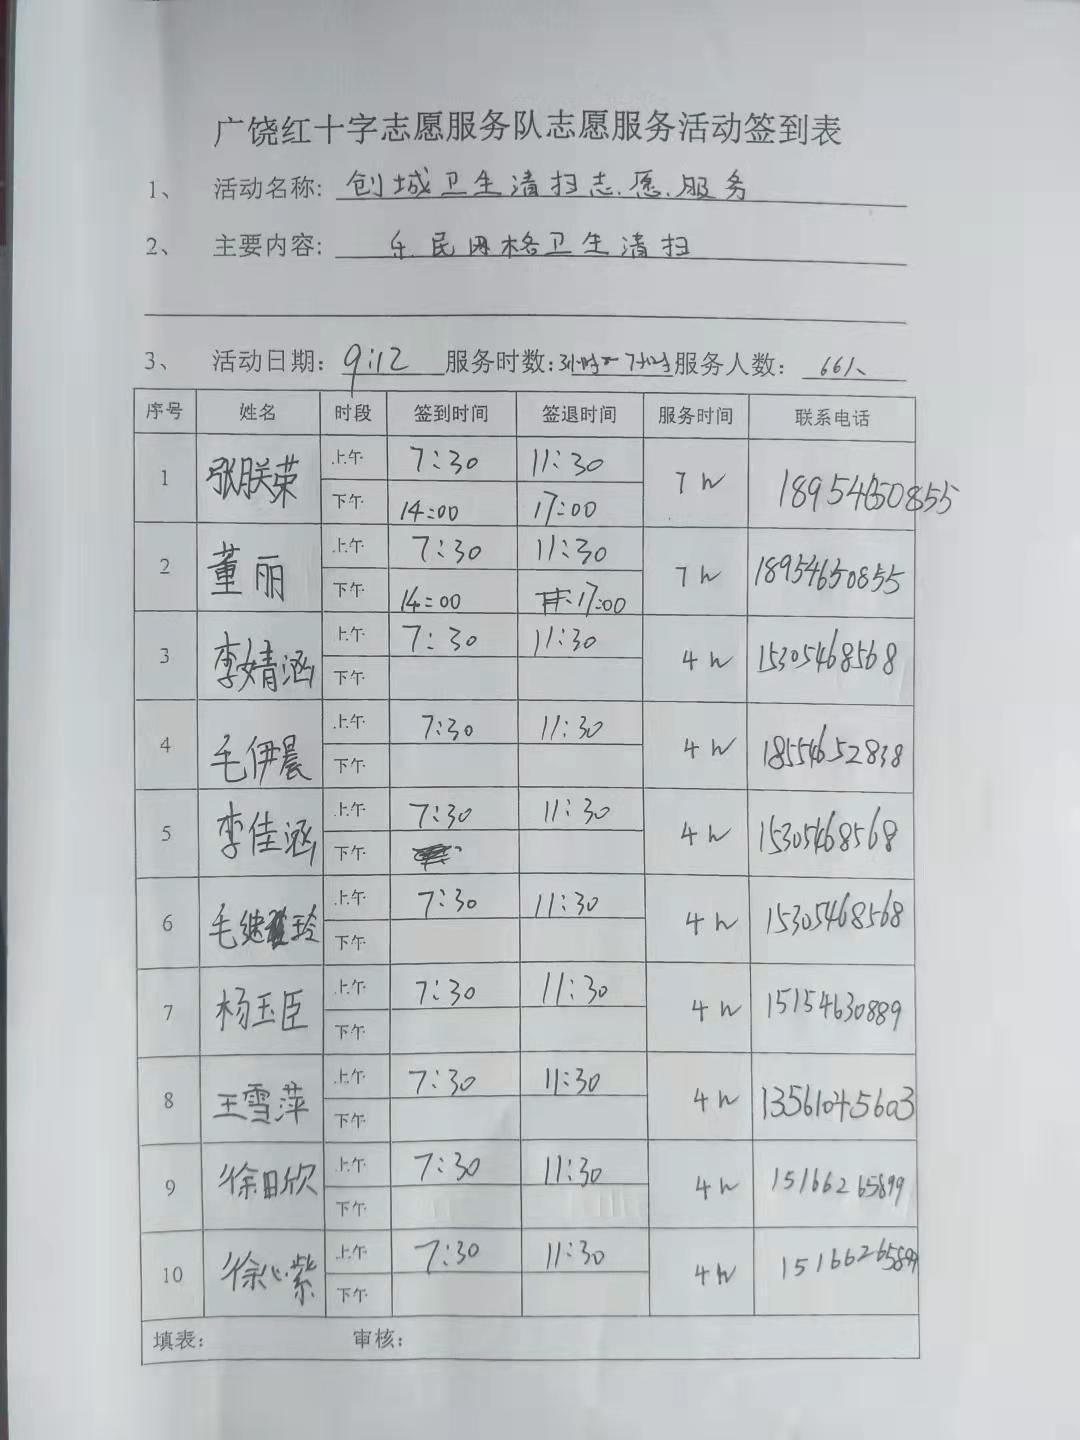 广饶红十字志愿服务队志愿服务活动签到表
1、 活动名称: 创城卫生清扫志愿服务
2、 主要内容: 乐民网格卫生清扫
3、 活动日期: 9.12 服务时数: 3小时~7小时 服务人数: 66人
序号 姓名 时段 签到时间 签退时间 服务时间 联系电话
1 张朕荣 上午 7:30 11:30 7h 18954650855
下午 14:00 17:00
2 董丽 上午 7:30 11:30 7h 18954650855
下午 14:00 17:00
3 李婧涵 上午 7:30 11:30 4h 15305468568
下午
4 毛伊晨 上午 7:30 11:30 4h 18554652838
下午
5 李佳涵 上午 7:30 11:30 4h 15305468568
下午
6 毛继玲 上午 7:30 11:30 4h 15305468568
下午
7 杨玉臣 上午 7:30 11:30 4h 15154630889
下午
8 王雪萍 上午 7:30 11:30 4h 13561045603
下午
9 徐日欣 上午 7:30 11:30 4h 15166265899
下午
10 徐心紫 上午 7:30 11:30 4h 15166265899
下午
填表: 审核: